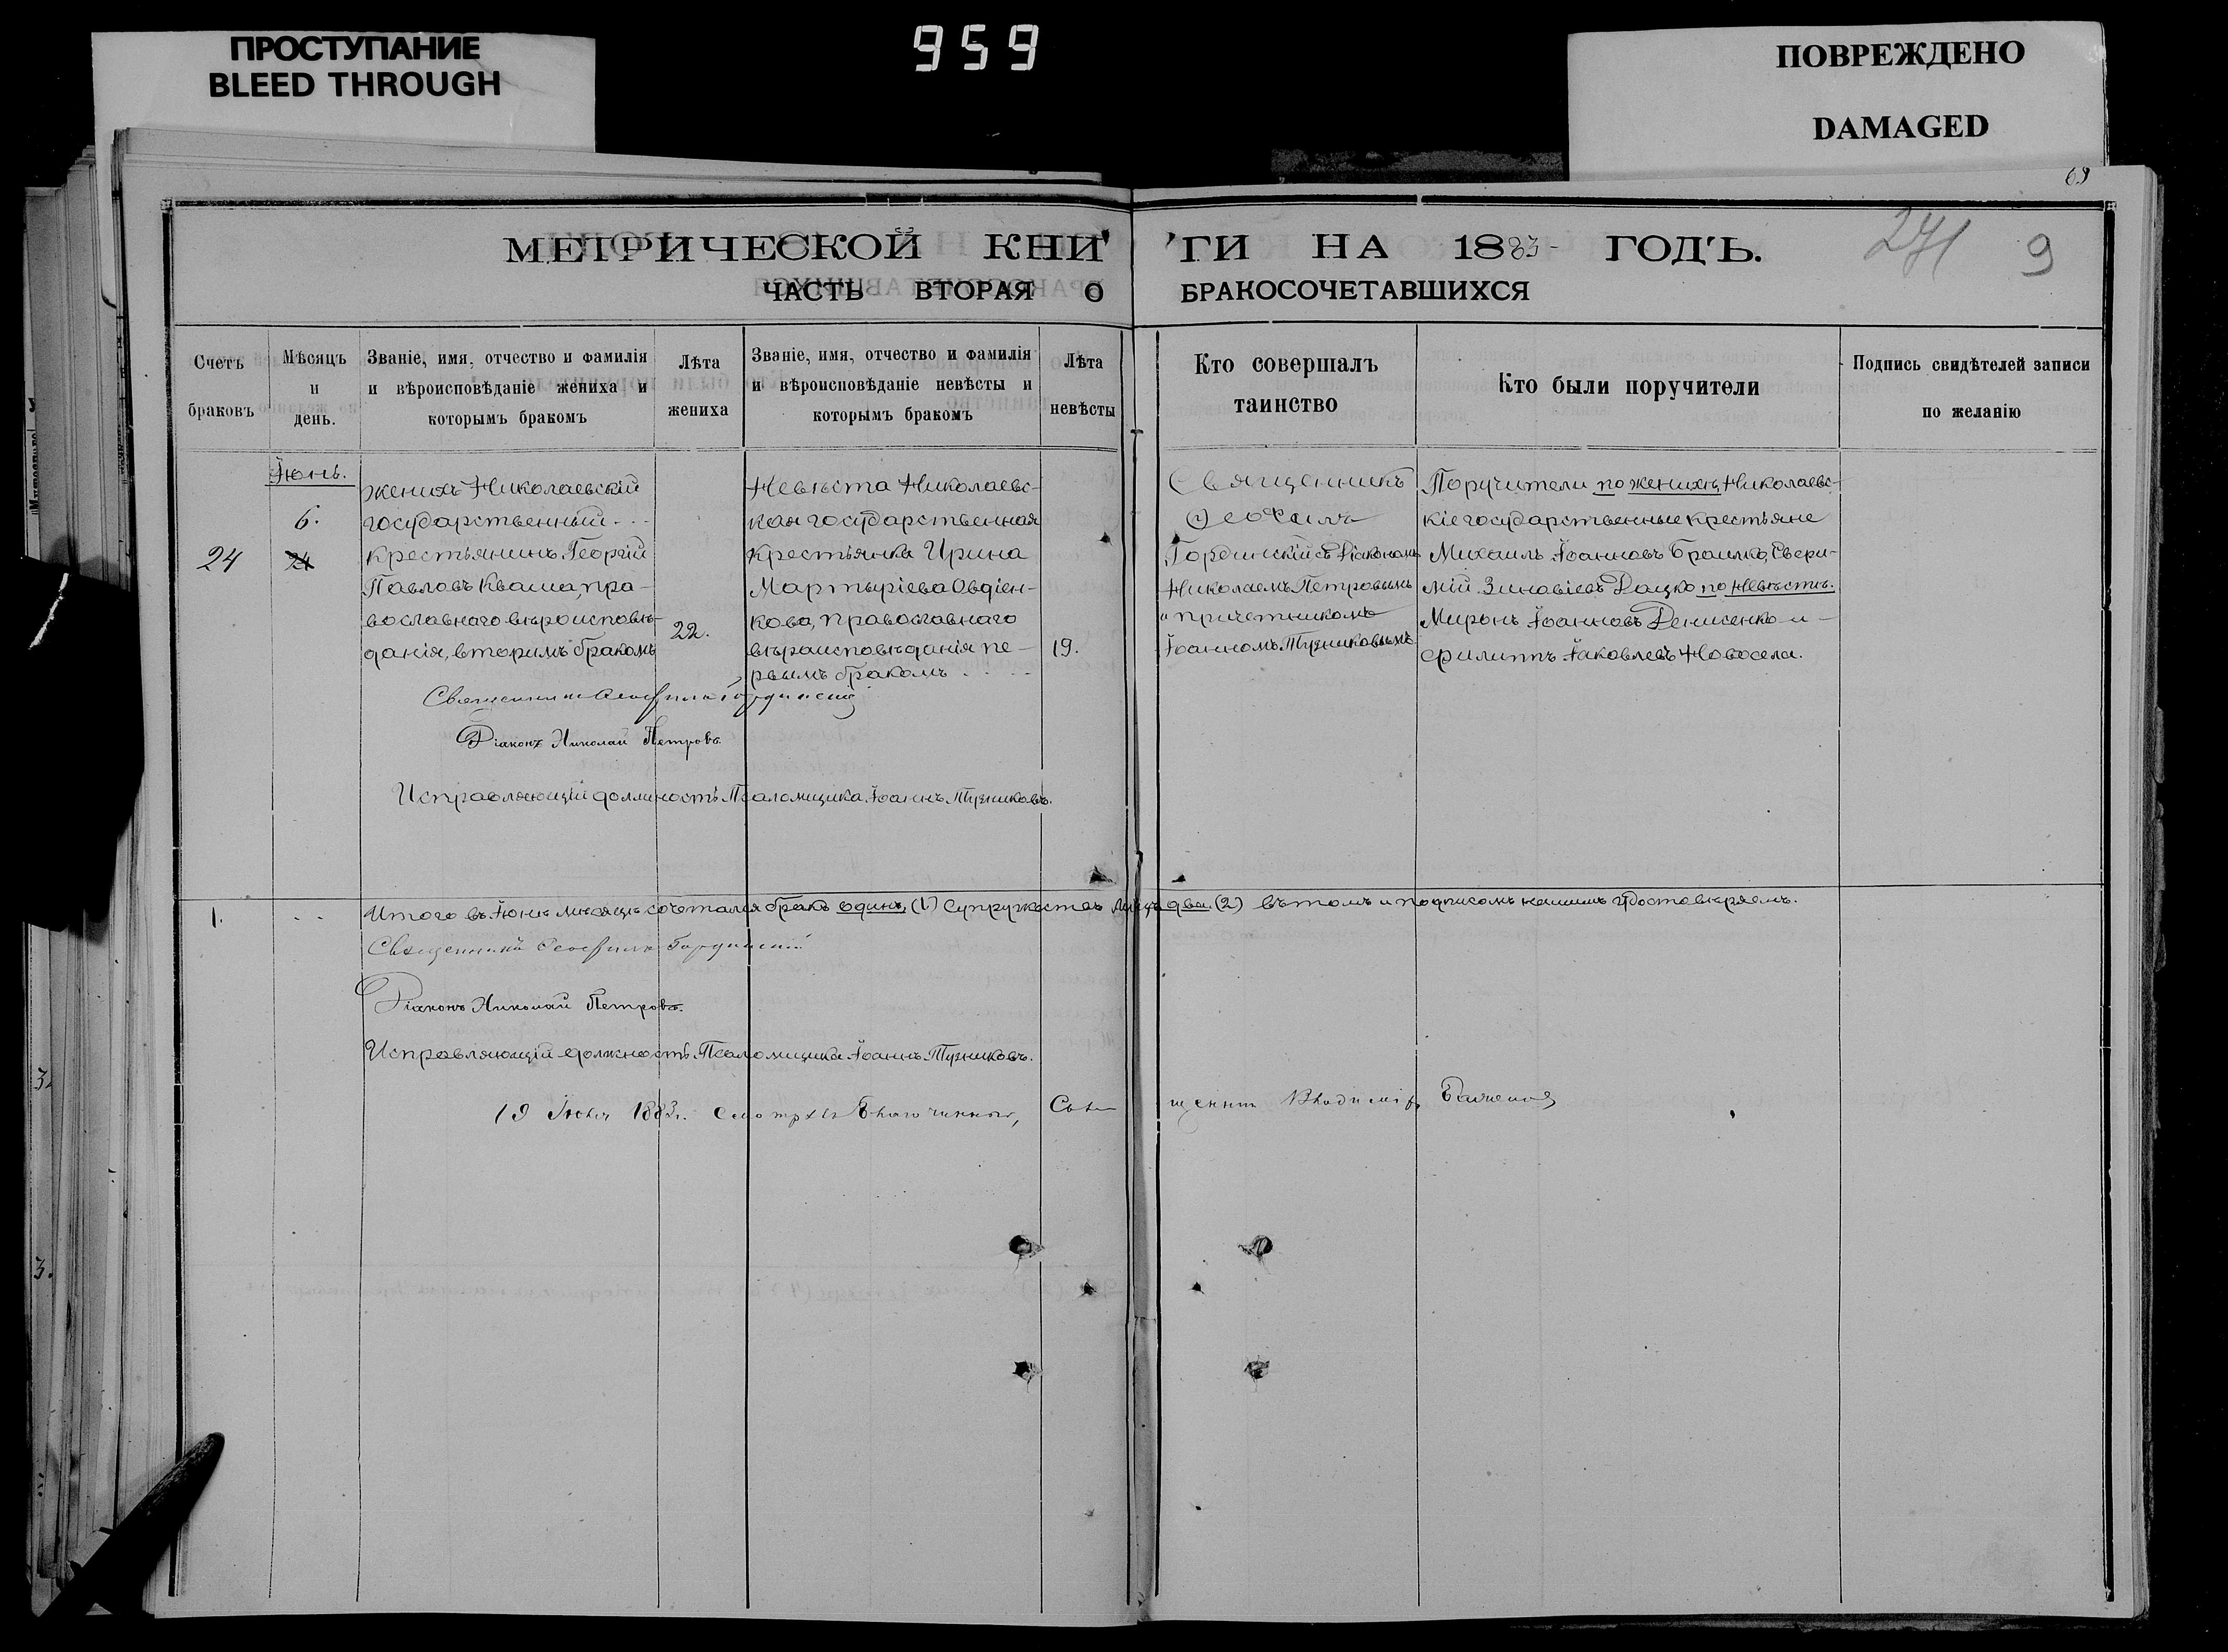 ПРОСТУПАНИЕ
BLEED THROUGH
959
ПОВРЕЖДЕНО
DAMAGED
69
МЕТРИЧЕСКОЙ КНИГИ НА 1883 ГОДЪ.
271 9
ЧАСТЬ ВТОРАЯ О БРАКОСОЧЕТАВШИХСЯ
Счетъ
браковъ
Мѣсяцъ
и
день.
Званіе, имя, отчество и фамилія
и вѣроисповѣданіе жениха и
которымъ бракомъ
Лѣта
жениха
Званіе, имя, отчество и фамилія
и вѣроисповѣданіе невѣсты и
которымъ бракомъ
Лѣта
невѣсты
Кто совершалъ
таинство
Кто были поручители
Подпись свидѣтелей записи
по желанію
24
Іюнь.
6.
женихъ Николаевскій
государственный
крестьянинъ Георгій
Павловъ Кваша, пра-
вославнаго вѣроисповѣ-
данія, вторымъ бракомъ
22.
Невѣста Николаевс-
кая государственная
крестьянка Ирина
Мартыріева Овдіен-
кова, православнаго
вѣроисповѣданія пе-
рвымъ бракомъ
19.
Священникъ
Ѳеофилъ
Гординскій съ Діакономъ
Николаемъ Петровымъ
и причетникомъ
Іоанномъ Тузниковымъ
Поручители по женихѣ, Николаевс-
кіе государственные крестьяне
Михаилъ Іоанновъ Браилко, Евфи-
мій Зиновіевъ Дацко по невѣстѣ.
Миронъ Іоанновъ Денисенко и
Филиппъ Іаковлевъ Новосела.
Священникъ Ѳеофилъ Гординскій
Діаконъ Николай Петровъ.
Исправляющій должность Псаломщика Іоаннъ Тузниковъ.
1. Итого въ Іюнѣ мѣсяцѣ сочетался бракъ одинъ, (1) супружества лицъ два. (2) въ томъ и подписомъ нашимъ удостовѣряемъ.
Священникъ Ѳеофилъ Гординскій
Діаконъ Николай Петровъ.
Исправляющій должность Псаломщика Іоаннъ Тузниковъ.
19 Іюля 1883 г. смотрѣлъ Благочинный, Священн Владиміръ